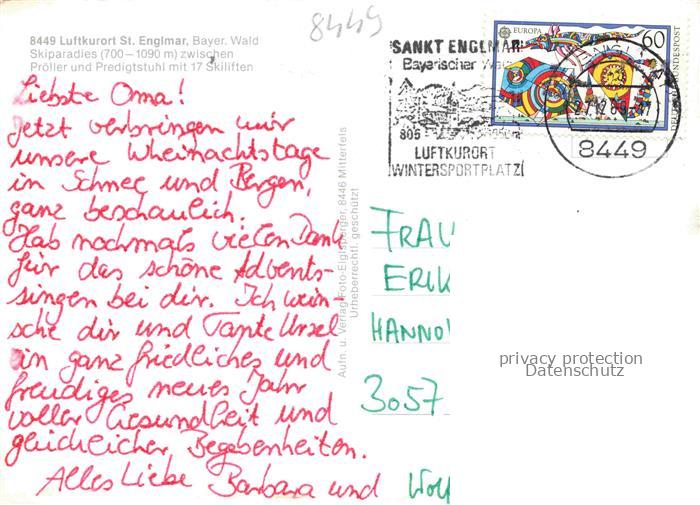 8449
8449 Luftkurort St. Englmar, Bayer. Wald
Skiparadies (700–1090 m) zwischen
Pröller und Predigtstuhl mit 17 Skiliften
Liebste Oma!
Jetzt verbringen wir
unsere Wheinachtstage
in Schnee und Bergen,
ganz beschaulich.
Hab nochmals vielen Dank
für das schöne Advents-
singen bei dir. Ich wün-
sche dir und Tante Ursel
ein ganz friedliches und
freudiges neues Jahr
voller Gesundheit und
glücklicher Begebenheiten.
Alles Liebe Barbara und Wolf
Aufn. u. Verlag Foto-Eiglsperger, 8446 Mitterfels
Urheberrechtl. geschützt
SANKT ENGLMAR
Bayerischer Wald
805
LUFTKURORT
WINTERSPORTPLATZ
EUROPA
60
BUNDESPOST
8449
FRAU
ERIK
HANNO
3057
privacy protection
Datenschutz